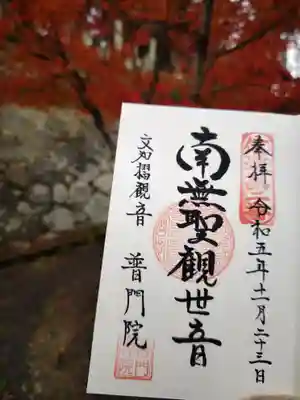 奉拝 令和五年十一月二十三日
南無聖觀世音
文知摺觀音 普門院